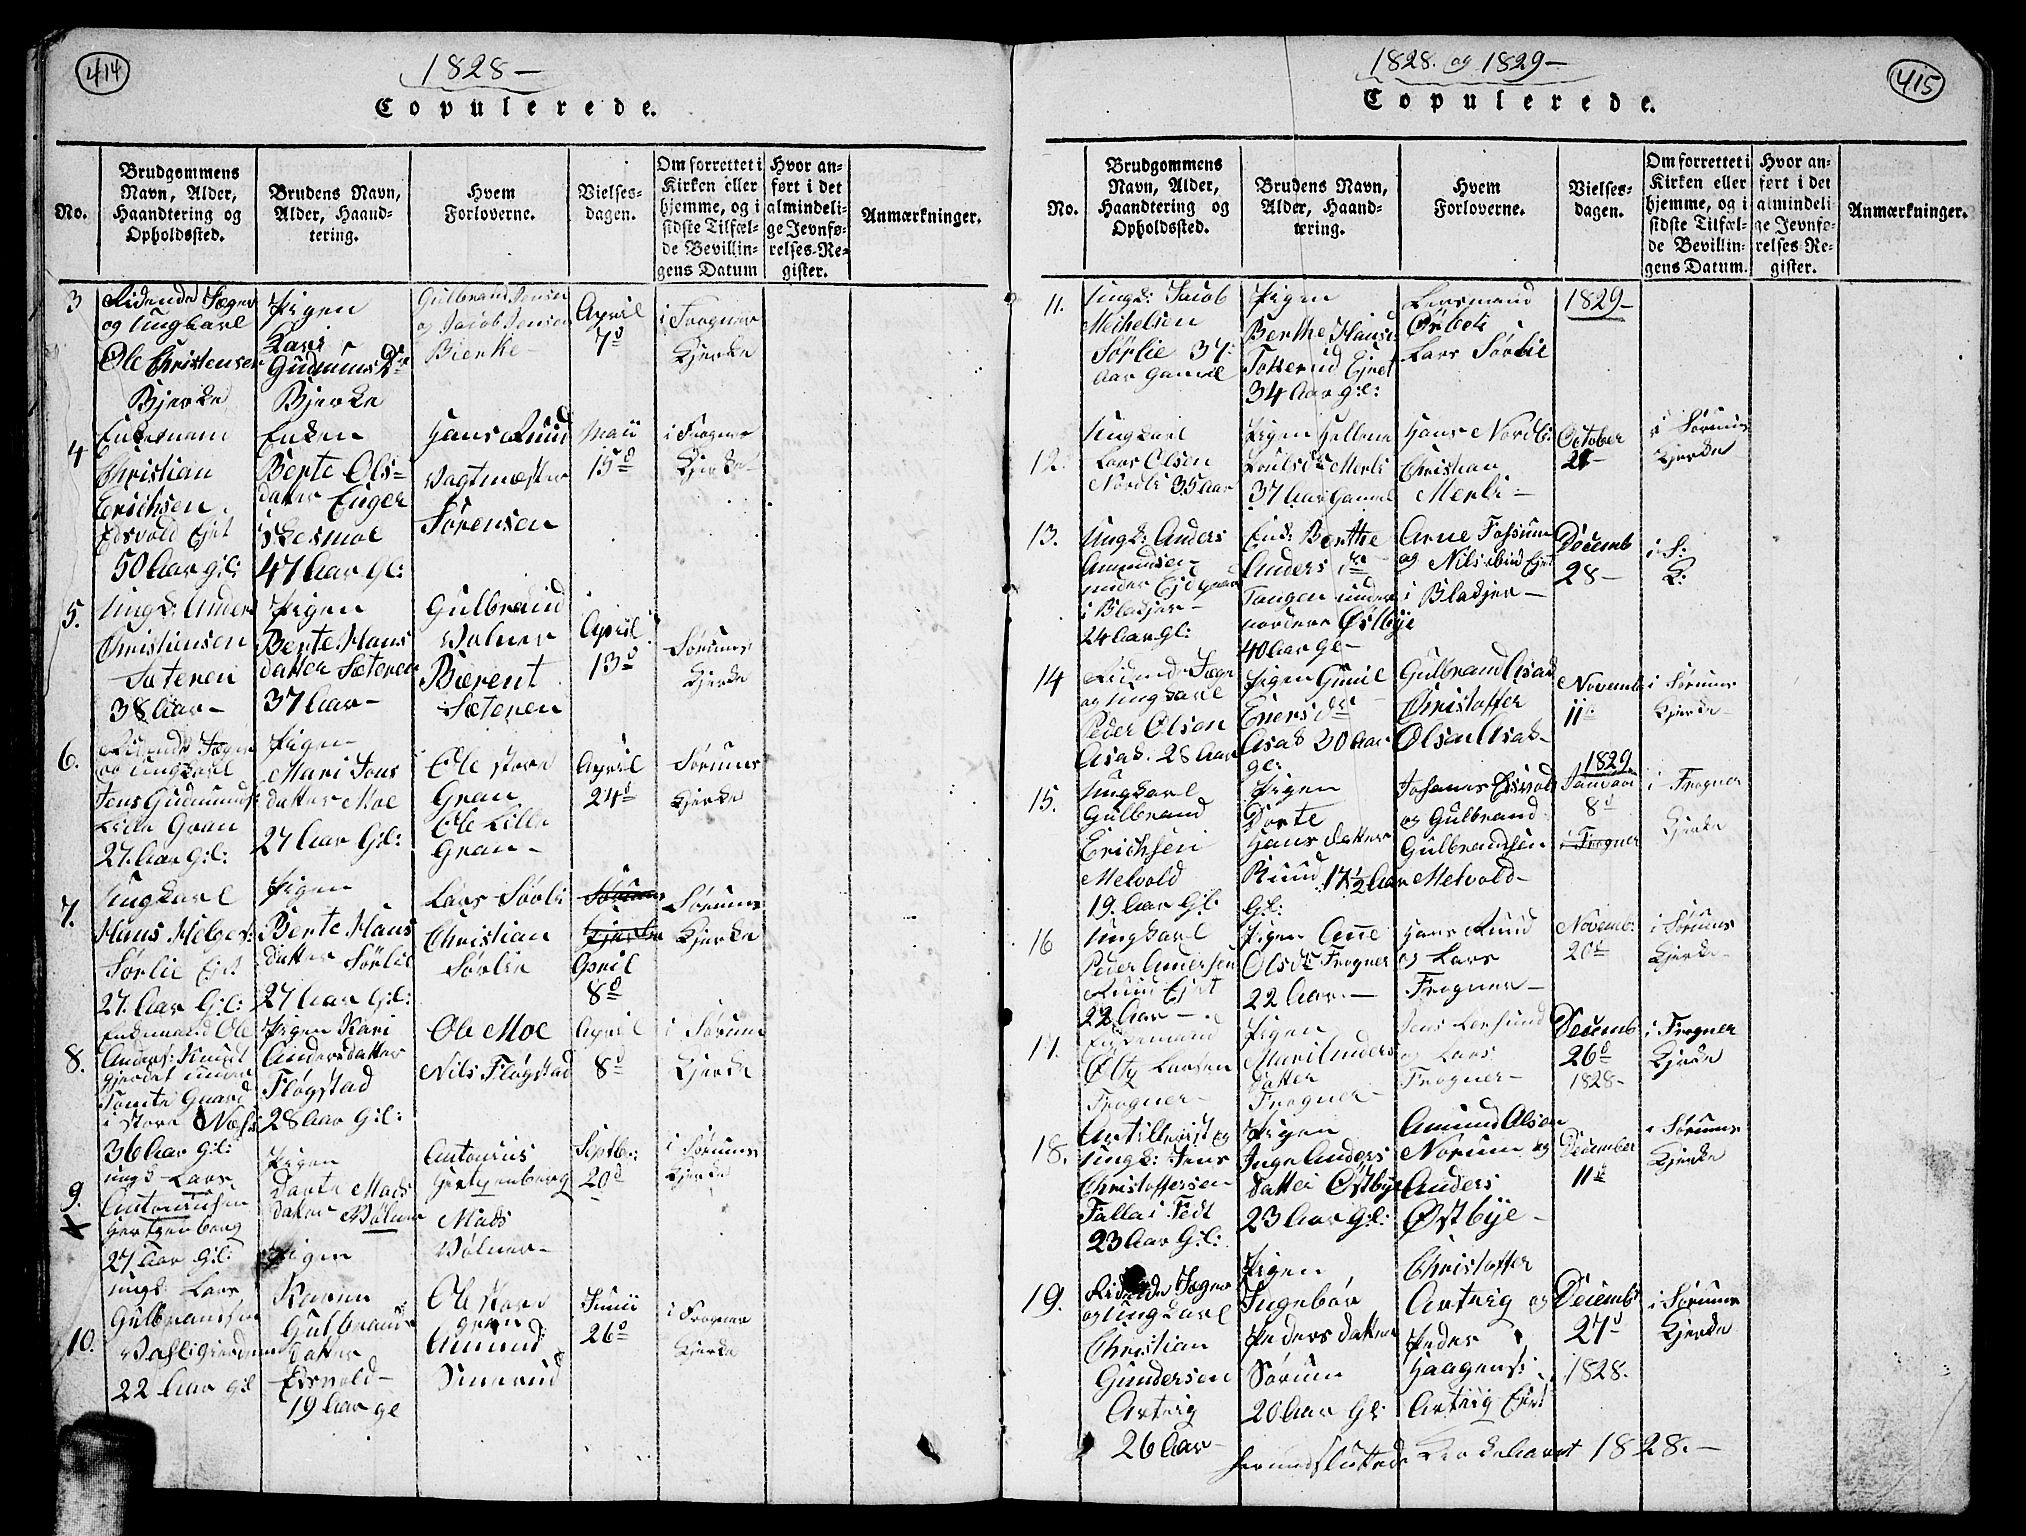 414
1828 –
Copulerede.
No.
Brudgommens
Navn, Alder,
Haandtering og
Opholdssted.
Brudens Navn,
Alder, Haand-
tering.
Hvem
Forloverne.
Vielses-
dagen.
Om forrettet i
Kirken eller
hjemme, og i
sidste Tilfæl-
de Bevillin-
gens Datum
Hvor an-
ført i det
almindeli-
ge Jevnfø-
relses-Re-
gister.
Anmærkninger.
3
Ridende Jæger
og Ungkarl
Ole Christensen
Bjerke
Pigen
Kari
Gudmunds Dr
Bjerke
Gulbrand Jensen
og Jacob Jensen
Bierke
April
7d
i Frogner
Kjerke
4
Enkemand
Christian
Erichsen
Edsvold Ejet
50 Aar gl:
Enken
Berte Ols-
datter Enger
i Skesmoe
47 Aar Gl:
Hans Ruud
Vagtmester
Sørensen
Maii
15d
i Frogner
Kjerke
5.
Ungk: Anders
Christiensen
Sæteren
38 Aar –
Pigen
Berte Hans
datter Sæteren
37 Aar –
Gulbrand
Wolner
Bærent
Sæteren
April
13d
Sørums
Kjerke
6.
Ridende Jæger
og Ungkarl
Jens Gudmunds:
Lille Gran
27. Aar Gl:
Pigen
Mari Jons
datter Moe
27 Aar Gl:
Ole store
Gran
Ole Lille
Gran –
April
24d
Sørums
Kjerke
7.
Ungkarl
Hans Helges:
Sørlie Ejet
27. Aar Gl:
Pigen
Berte Hans
datter Sørlie
27 Aar Gl:
Lars Sørli
Christian
Sørlie
Sørums
Kjerke
April
8d
Sørums
Kjerke
8.
Enkemand Ole
Anders: Knust
gjerdet under
Tomte Gaard
i store Næs
36 Aar Gl:
Pigen Kari
Andersdatter
Fløgstad
28 Aar Gl:
Ole Moe
Nils Fløgstad
April
8d
i Sørum
Kjerke
9.
Ungk Lars
Antonisen
Hertzenberg
27 Aar Gl:
Pigen
Dorte Mads
datter Wølner
Antonius
Hertzenberg
Mads
Wølner –
Septbr:
20d
i Sørums
Kjerke
10.
Ungk Lars
Gulbransen
22 Aar gl
Pigen
Karen
Gulbrans
datter
Eisvold –
19 Aar gl
Ole store
gran
Amund
Junii
26d
i Frogner
Kjerke
415
1828. og 1829 –
Copulerede.
No.
Brudgommens
Navn, Alder,
Haandtering og
Opholdssted.
Brudens Navn,
Alder, Haand-
tering.
Hvem
Forloverne.
Vielses-
dagen.
Om forrettet i
Kirken eller
hjemme, og i
sidste Tilfæl-
de Bevillin-
gens Datum.
Hvor an-
ført i det
almindeli-
ge Jevnfø-
relses-Re-
gister.
Anmærkninger.
11.
Ungk: Jacob
Meihelsen
Sørlie 37
Aar Gammel
Pigen
Berthe Hansd:
Toserud Ejet
34 Aar gl:
Lensmand
Ørbek
Lars Sørlie
1829 –
12.
Ungkarl
Lars Olsen
Nordli 35 Aar
Pigen Hellene
Poulsdr Merli
37 Aar Gamel
Hans Nordli
Christian
Merli –
October
21 –
i Sørums
Kjerke
13.
Ungk: Anders
Amundsen
under Ejd gaard
i Blakjer –
24 Aar Gl:
Enk: Berthe
Anders dr
Tangen under
nordere Østbye
40 Aar gl –
Arne Fossum
og Nils Ejet
i Blakjer –
Decemb
28 –
i S:
K:
14
Ridende Jæger
og Ungkarl
Peder Olsen
Asak. 28 Aar
Pigen Gunil
Eners dr
Asak 30 Aar
gl:
Gulbrand Asak
Christoffer
Olsen Asak –
Novemb
11t
i Sørums
Kjerke –
15.
Ungkarl
Gulbrand
Erichsen
Melvold
19. Aar Gl:
Pigen
Dorte
Hans datter
Ruud 17 1/2 Aar
Gl:
Johanes Eisvold
og Gulbrand
Gulbrandsen
Melvold –
1829
Januari
8d
i Frogner
i Frogner
Kjerke
16
Ungkarl
Peder Andersen
Ruud Ejet
22 Aar –
Pigen Ane
Olsdr Frogner
22 Aar. –
Hans Ruud
og Lars
Frogner –
Novemb:
20d
i Sørums
Kjerke –
17.
Enkemand
Larsen
Frogner –
Pigen
Mari Anders
datter
Frogner –
Jens Lersund
og Lars
Frogner –
Decemb
26d
1828 –
i Frogner
Kjerke
18.
Artillerist og
Ungk: Jens
Christoffersen
Falla i Fedt
23 Aar Gl:
Pigen
Inge Anders
datter Østbye
23 Aar Gl:
Amund Olsen
Norum og
Anders
Østbye –
December
11te
i Sørums
Kjerke
19.
Ridende Jæger
og Ungkarl
Christian
Gundersen
Arteig
26 Aar –
Pigen
Ingebor
Peders datter
Sørum
20 Aar Gl:
Christoffer
Arteig og
Peder
Haagens:
Arteig Ejet
Decemb
27d
1828.
i Sørums
Kjerke
hermed sluttede Kirkeaaret 1828. –